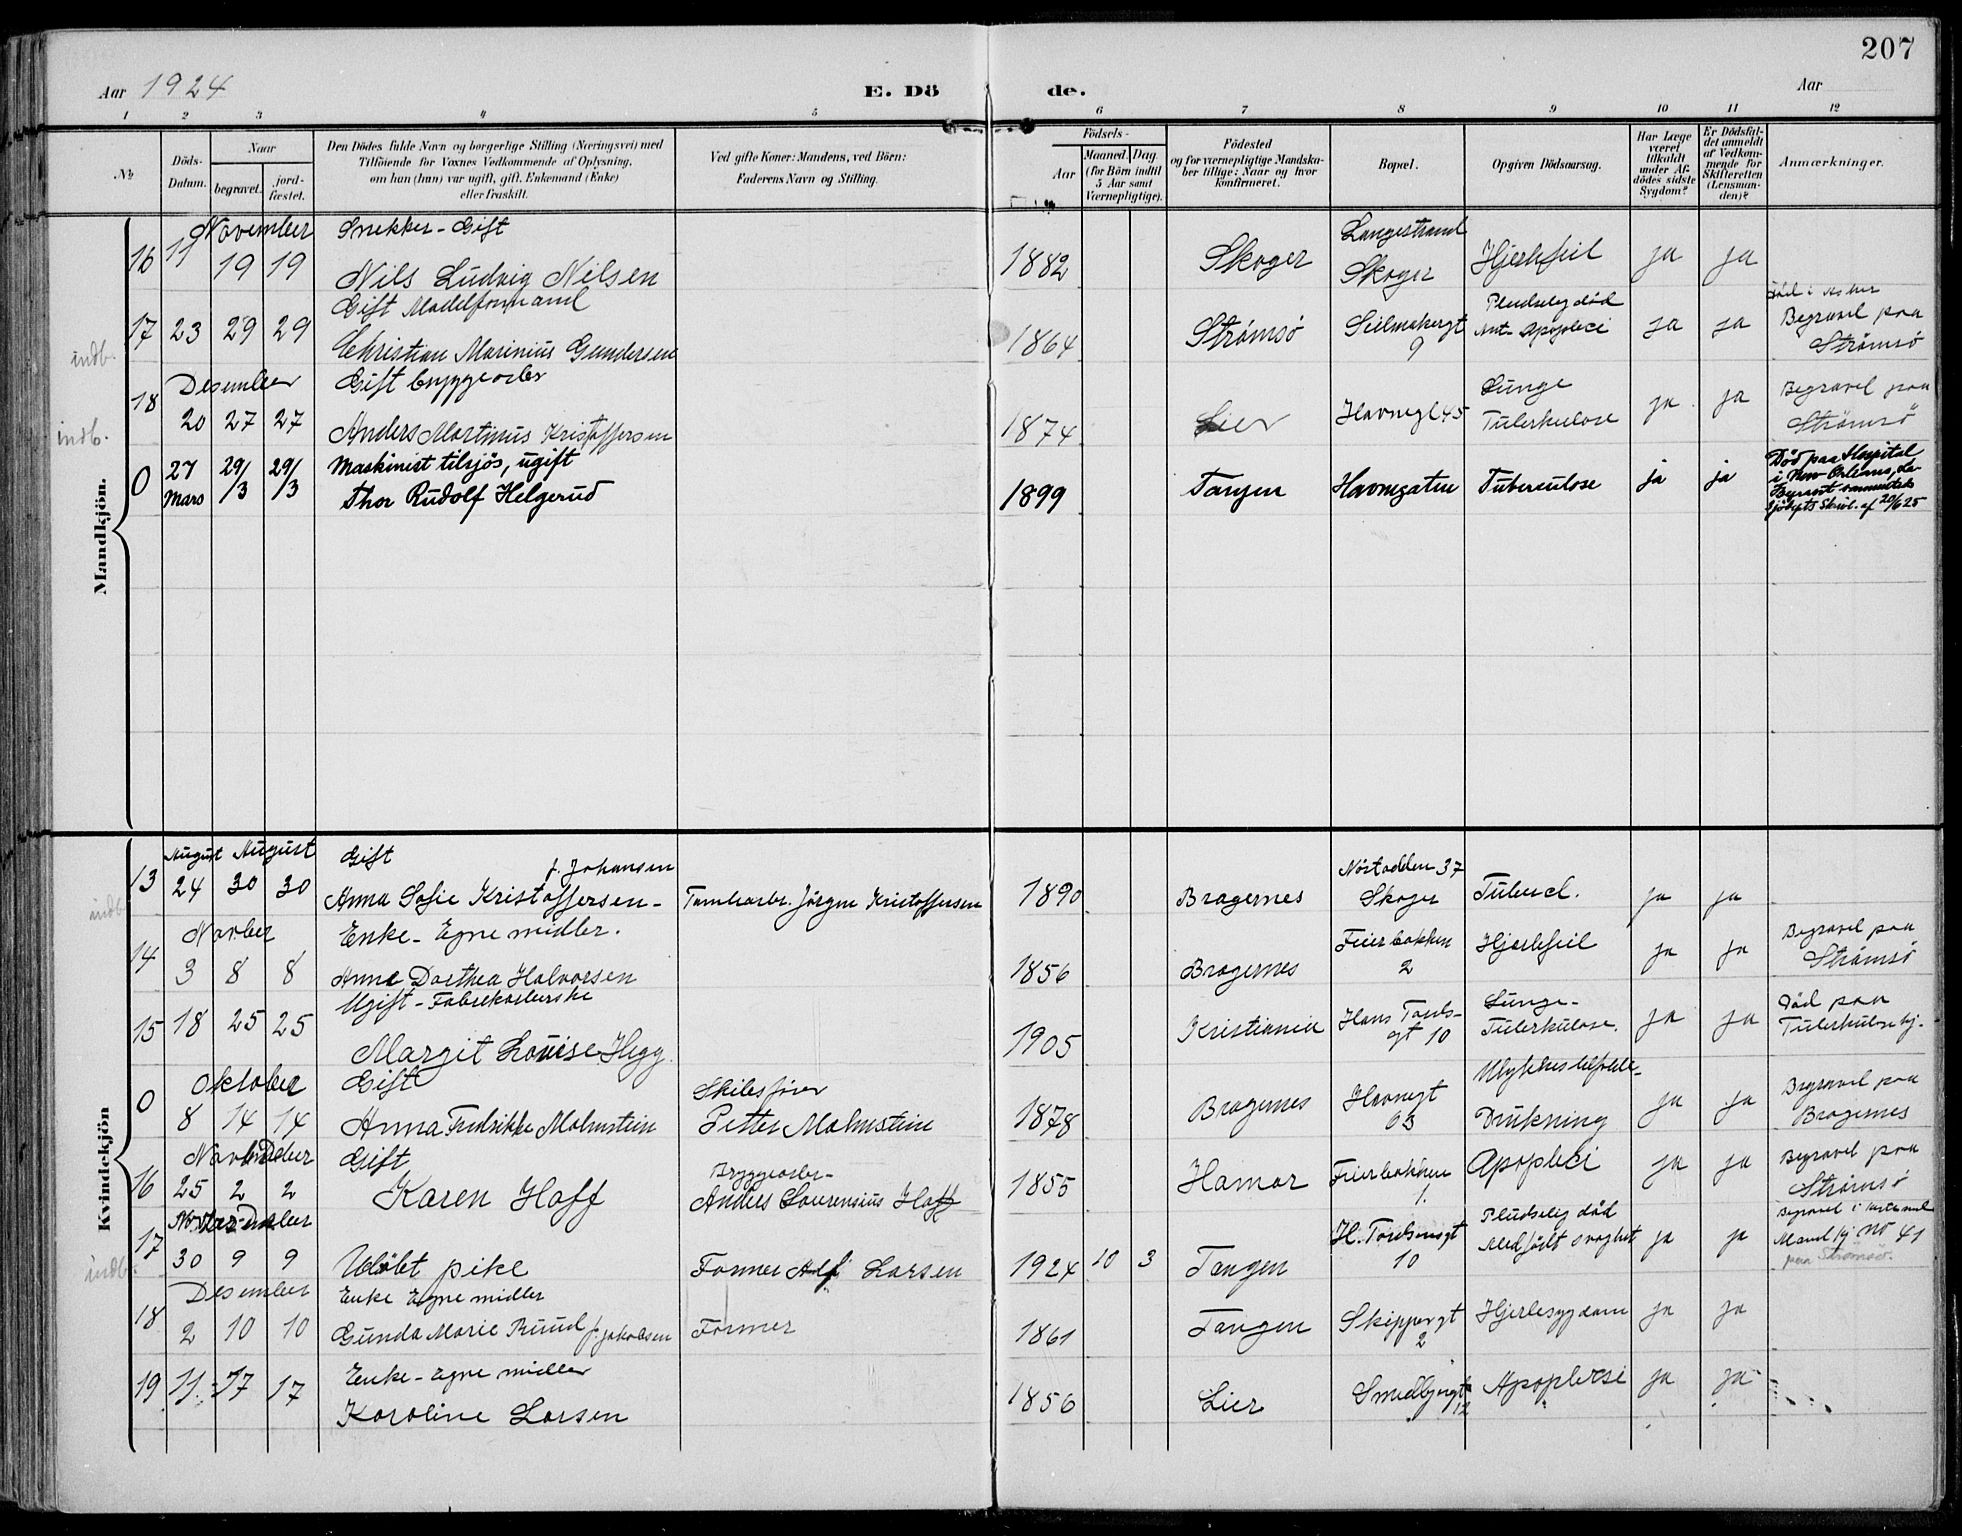 207
Aar 1924
E. Dö de.
Aar
1 2 3 4 5 6 7 8 9 10 11 12
No
Döds-Datum.
Naar
begravet.
jordfæstet.
Den Dödes fulde Navn og borgerlige Stilling (Næringsvei) med
Tilföiende for Voxnes Vedkommende af Oplysning,
om han (hun) var ugift, gift, Enkemand (Enke)
eller fraskilt.
Ved gifte Koner: Mandens, ved Börn:
Faderens Navn og Stilling.
Födsels-
Aar
Maaned. Dag
(for Börn indtil
5 Aar samt
Værnepligtige).
Födested
og for værnepligtige Mandska-
ber tillige: Naar og hvor
konfirmeret.
Bopæl.
Opgiven Dödsaarsag.
Har Læge
været
tilkaldt
under Af-
dödes sidste
Sygdom?
Er Dödsfal-
det anmeldt
af Vedkom-
mende for
Skifteretten
(Lensman-
den)?
Anmærkninger.
Mandkjön.
November Snekker - Gift Langestrand
16 11 19 19 Nils Ludvig Nilsen 1882 Skoger Skoger Hjertefeil ja ja
Gift Modelformand Pludselig død
indb. 17 23 29 29 Christian Marinius Gundersen 1864 Strømsö Seilmakergt 9 Ant. Apoplexi ja ja Begravet paa Strømsö
Desember Gift bryggearbr Lunge
indb. 18 20 27 27 Anders Martinus Kristoffersen 1874 Lier Havnegt 45 Tuberkulose ja ja Begravet paa Strømsö
Maskinist tilsjös, ugift
0 27 Mars 29/3 29/3 Thor Rudolf Helgerud 1899 Tangen Havnegaten Tuberculose ja ja Död paa Hospital
i New Orleans, La
Sjödepts Skriv. af 20/6 25
Kvindekjön
August August Gift f. Johansen Nöstodden 37
indb 13 24 30 30 Anna Sofie Kristoffersen - Tomtearbr. Jörgen Kristoffersen 1890 Bragernes Skoger Tubercl. ja ja
Novber Enke - Egne midler.
14 3 8 8 Anne Dorthea Halvorsen 1856 Bragernes Feierbakken 2 Hjertefeil ja ja Begravet paa Strømsö
Ugift - Fabrikarberske
15 18 25 25 Margit Louise Hegg 1905 Kristiania Hans Tords-gt 10 Lunge-Tuberkulose. ja ja Död paa Tuberkulosehj.
Oktober Gift Skibsfører Ulykkestilfelde-
0 8 14 14 Anna Fredrikke Malmstein Petter Malmstein 1878 Bragernes Havnegt 63 Drukning ja ja Begravet paa Bragernes
Novber Desber Gift Bryggearbr-
16 25 2 2 Karen Hoff Anders Laurensius Hoff 1855 Hamar Feierbakken 1. Apoplexi ja ja Begravet paa Strømsö
Novber Desber Pludselig död
indb. 17 30 9 9 Udöbt pike Former Alf Larsen 1924 10 3 Tangen H. Tordsensgt 10 Medfødt svaghet ja ja Mandkj No 41
paa Strømsö.
Desember Enke Egne midler
18 2 10 10 Gunda Marie Ruud f. Jakobsen Former 1861 Tangen Skippergt 2 Hjertesygdom ja ja
Enke - Egne midler
19 11. 17 17 Karoline Larsen 1856 Lier Smedbjergt 12 Apoplexi ja ja